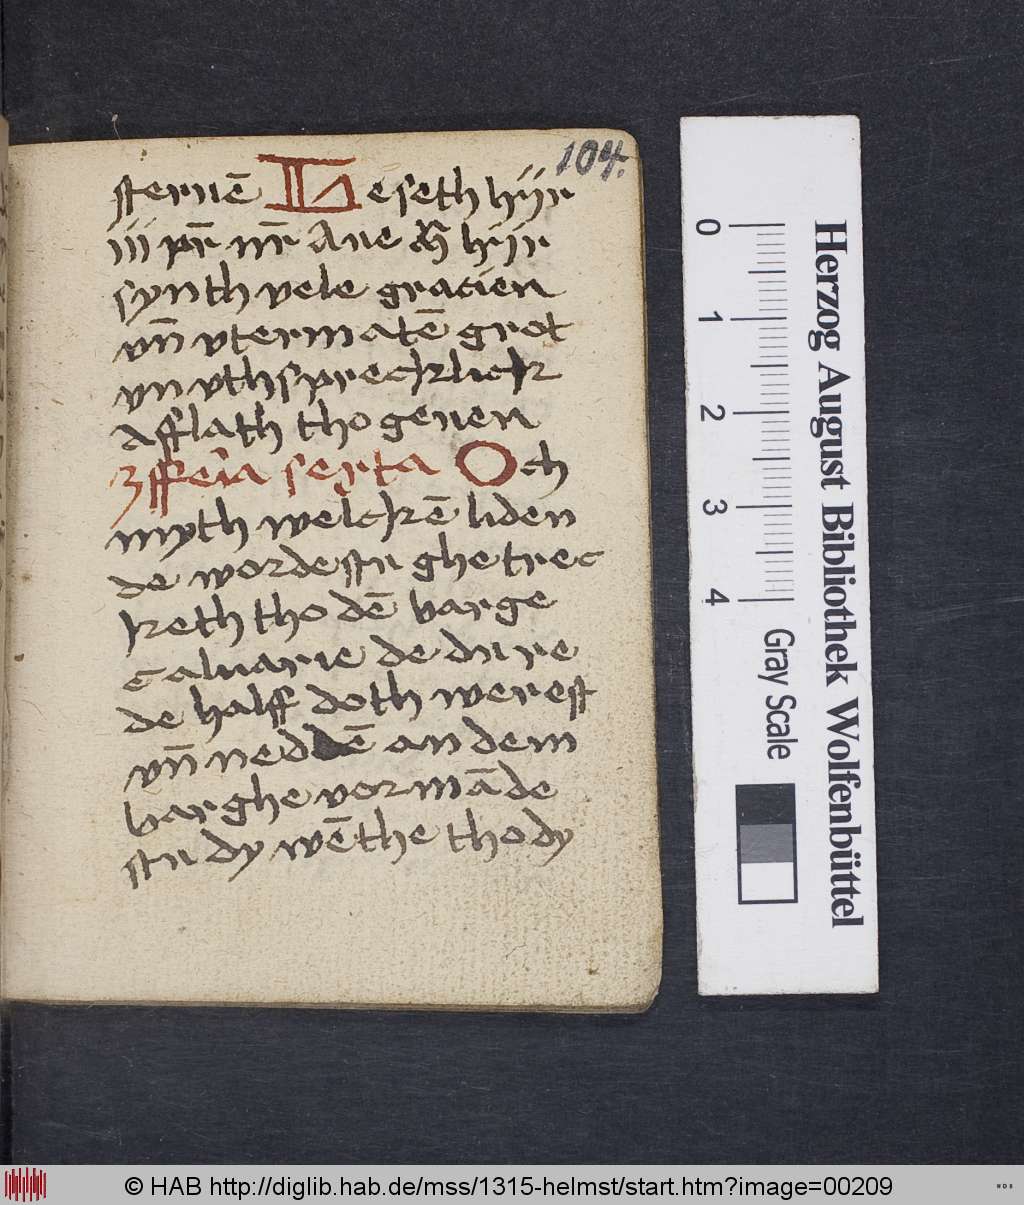 104.
sternē Leseth hijr
iij pr̄ nr̄ Aue M̄ hijr
synth vele gracien
vn̄ vtermatē grot
vn vthsprecklick
Afflath tho geuen
ffeīa sexta Och
myth welckē liden
de wordestu ghetrec
keth tho dē barge
caluarie de du re
de halff doth werest
vn̄ neddē an dem
barghe vormāde
stu dy wēthe tho dy
0 1 2 3 4
Gray Scale
Herzog August Bibliothek Wolfenbüttel
© HAB http://diglib.hab.de/mss/1315-helmst/start.htm?image=00209
WDB